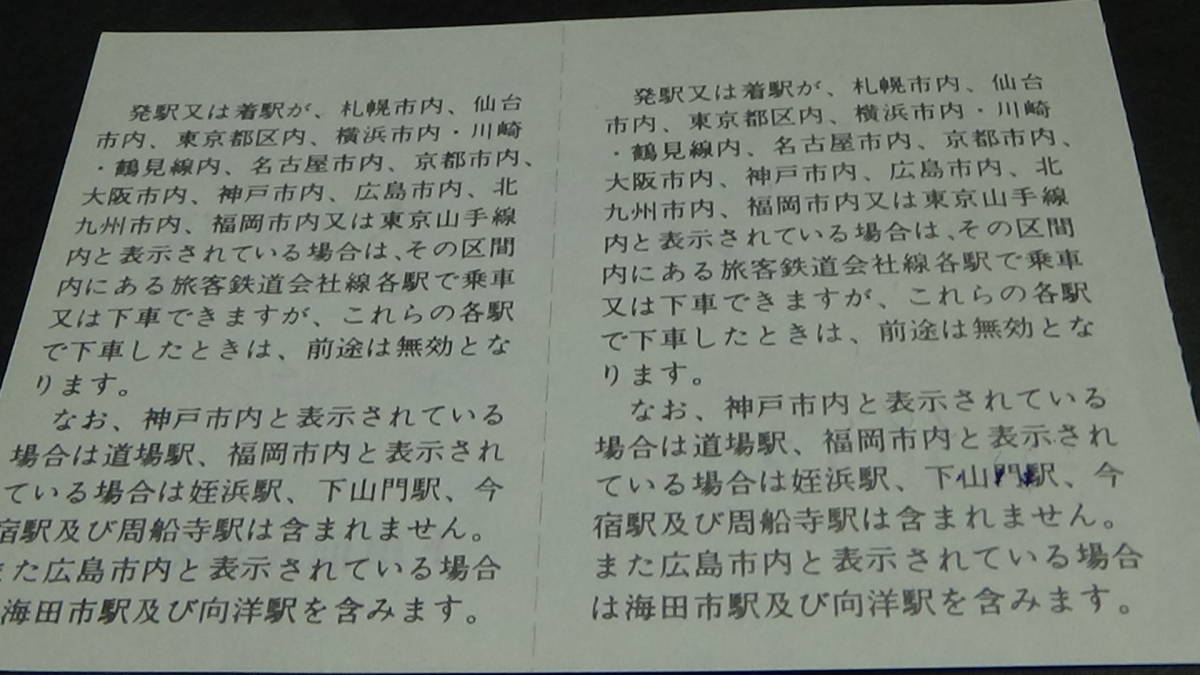 発駅又は着駅が、札幌市内、仙台
市内、東京都区内、横浜市内・川崎
・鶴見線内、名古屋市内、京都市内、
大阪市内、神戸市内、広島市内、北
九州市内、福岡市内又は東京山手線
内と表示されている場合は、その区間
内にある旅客鉄道会社線各駅で乗車
又は下車できますが、これらの各駅
で下車したときは、前途は無効とな
ります。
なお、神戸市内と表示されている
場合は道場駅、福岡市内と表示され
ている場合は姪浜駅、下山門駅、今
宿駅及び周船寺駅は含まれません。
また広島市内と表示されている場合
海田市駅及び向洋駅を含みます。
発駅又は着駅が、札幌市内、仙台
市内、東京都区内、横浜市内・川崎
・鶴見線内、名古屋市内、京都市内、
大阪市内、神戸市内、広島市内、北
九州市内、福岡市内又は東京山手線
内と表示されている場合は、その区間
内にある旅客鉄道会社線各駅で乗車
又は下車できますが、これらの各駅
で下車したときは、前途は無効とな
ります。
なお、神戸市内と表示されている
場合は道場駅、福岡市内と表示され
ている場合は姪浜駅、下山門駅、今
宿駅及び周船寺駅は含まれません。
また広島市内と表示されている場合
は海田市駅及び向洋駅を含みます。